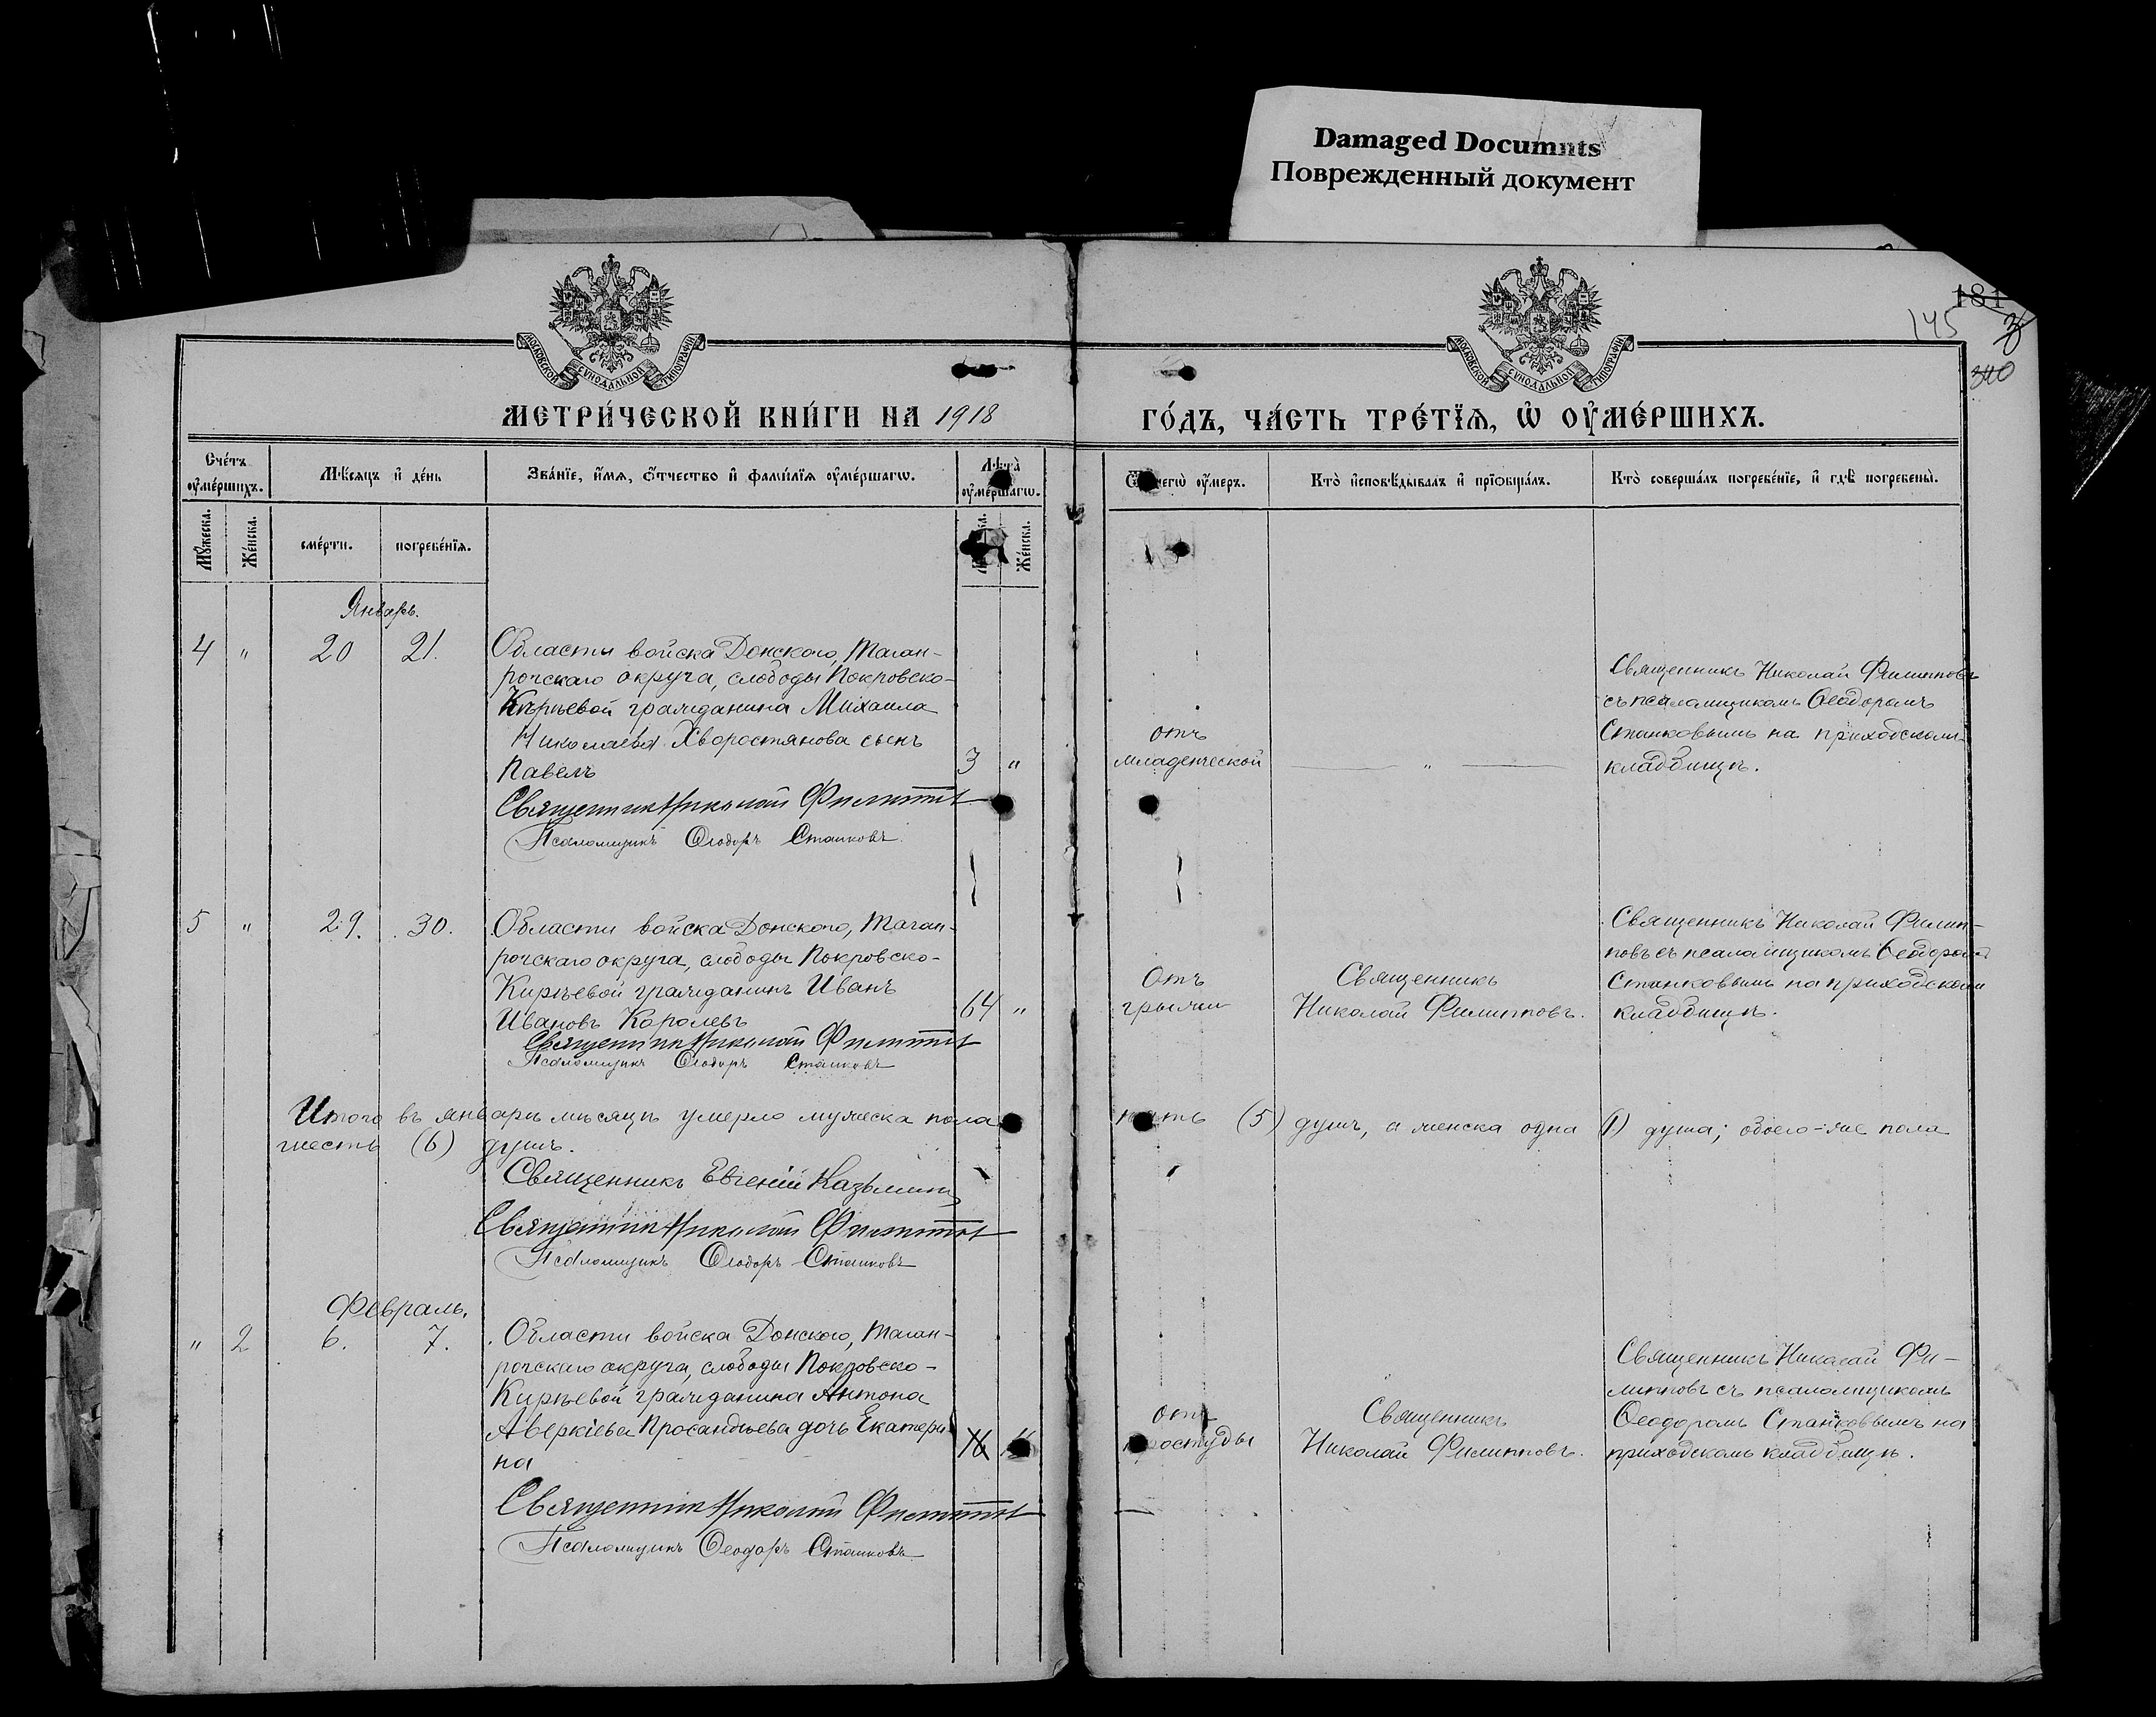 Damaged Documnts
Поврежденный документ
МОСКОВСКОЙ СѴНОДАЛЬНОЙ ТИПОГРАФІИ
МОСКОВСКОЙ СѴНОДАЛЬНОЙ ТИПОГРАФІИ
181
145
340
МЕТРИ́ЧЕСКОЙ КНИ́ГИ НА 1918
ГО́ДЪ, ЧА́СТЬ ТРЕ́ТЇѦ, Ѡ҆ ОУ҆МЕ́РШИХЪ.
Сче́тъ оу҆ме́ршихъ.
Мѣ́сяцъ и҆ де́нь
Зва́нїе, и҆́мя, ѻ҆́тчество и҆ фами́лїя оу҆ме́ршагѡ.
Лѣ́та̀ оу҆ме́ршагѡ.
чегѡ̀ оу҆́меръ.
Кто̀ и҆сповѣ́дывалъ и҆ прїѡбща́лъ.
Кто̀ соверша́лъ погребе́нїе, и҆ гдѣ̀ погребены̀.
Мꙋ́жеска.
Же́нска.
сме́рти.
погребе́нїя.
Же́нска.
Январь.
4 " 20 21. Области войска Донского, Таган-
рогскаго округа, слободы Покровско-
Кирѣевой гражданина Михаила
Николаева Хворостянова сынъ
Павелъ 3 "
Священникъ Николай Филипповъ
Псаломщикъ Ѳеодоръ Станковъ.
отъ
младенческой
"
Священникъ Николай Филипповъ
съ псаломщикомъ Ѳеодоромъ
Станковымъ на приходскомъ
кладбищѣ.
5 " 29. 30. Области войска Донского, Таган-
рогскаго округа, слободы Покровско-
Кирѣевой гражданинъ Иванъ
Ивановъ Королевъ 64 "
Священникъ Николай Филипповъ
Псаломщикъ Ѳеодоръ Станковъ
Отъ
грыжи
Священникъ
Николай Филипповъ.
Священникъ Николай Филип-
повъ съ псаломщикомъ Ѳеодоромъ
Станковымъ на приходскомъ
кладбищѣ.
Итого въ январѣ мѣсяцѣ умерло мужеска пола пять (5) душъ, а женска одна (1) душа; обоего-же пола
шесть (6) душъ.
Священникъ Евгеній Казьминъ
Священникъ Николай Филипповъ
Псаломщикъ Ѳеодоръ Станковъ
Февраль.
" 2 6. 7. Области войска Донского, Таган-
рогскаго округа, слободы Покровско-
Кирѣевой гражданина Антона
Аверкіева Просандѣева дочь Екатери
на
Священникъ Николай Филипповъ
Псаломщикъ Ѳеодоръ Станковъ
отъ
простуды
Священникъ
Николай Филипповъ.
Священникъ Николай Фи-
липповъ съ псаломщикомъ
Ѳеодоромъ Станковымъ на
приходскомъ кладбищѣ.